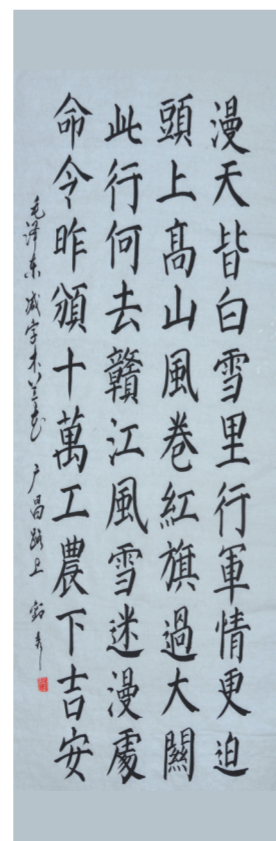 漫天皆白雪里行軍情更迫
頭上高山風卷紅旗過大關
此行何去贛江風雪迷漫處
命令昨頒十萬工農下吉安
毛泽东减字木兰花 广昌路上